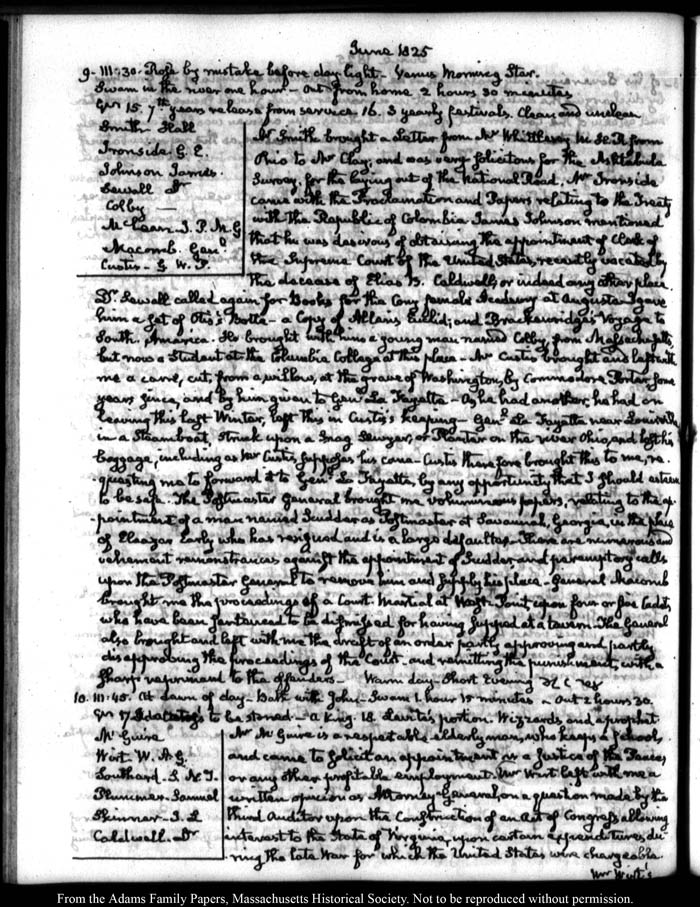 June 1825
9. III:30. Rose by mistake before day light. Venus Morning Star.
Swam in the river one hour. Out from home 2 hours 30 minutes
15. 7th years release from service 16. 3 yearly festivals. Clean and unclean
Smith
Ironside. G. E.
Johnson James.
Sewall Dr
Colby —
McLean. J. P. M G
Macomb. Genl
Custis. G W. P.
Mr Smith brought a Letter from Mr Whittlesey M. H. R from
Ohio to Mr Clay, and was very solicitous for the Ashtabula
Survey, for the laying out of the National Road. Mr Ironside
came with the Proclamation and Papers relating to the Treaty
with the Republic of Colombia. James Johnson mentioned
that he was desirous of obtaining the appointment of Clerk of
the Supreme Court of the United States, recently vacated by
the decease of Elias B. Caldwell, or indeed any other place.
Dr Sewall called again for Books for the Cony female Academy at Augusta. I gave
him a set of Otis's Botta — a Copy of Allen's Euclid, and Brackenridge's Voyage to
South America. He brought with him a young man named Colby, from Massachusetts,
but now a Student at the Columbia College at this place. Mr Custis brought and left with
me a cane, cut, from a willow, at the grave of Washington, by Commodore Porter some
years since, and by him given to Genl La Fayette. As he had another, he had on
leaving this last Winter, left this in Custis's keeping. Genl La Fayette near Louisville
in a Steamboat, struck upon a Snag Sawyer, or Planter on the river Ohio, and lost his
baggage, including as Mr Custis supposes his cane. Custis therefore brought this to me, re-
questing me to forward it to Genl La Fayette, by any opportunity that I should esteem
to be safe. The Postmaster General brought me voluminous papers, relating to the ap-
pointment of a man named Scudder as Postmaster at Savannah, Georgia, in the place
of Eleazar Early who has resigned and is a large defaulter. There are numerous and
vehement remonstrances against the appointment of Scudder, and peremptory calls
upon the Postmaster General to remove him and supply his place. General Macomb
brought me the proceedings of a Court Martial at West-Point, upon four or five Cadets,
who have been sentenced to be dismissed for having supped at a tavern. The General
also brought and left with me the draft of an order partly approving and partly
disapproving the proceedings of the Court, and remitting the punishment, with a
sharp reprimand to the offenders — Warm day. Short Evening
10. III:45. At dawn of day. Bath with John. Swam 1. hour 15 minutes. Out 2 hours 30.
17. Idolators to be stoned — a King. 18. Levite's portion. Wizzards and a prophet
Mc Guire
Wirt. W. A. G.
Southard. S. N. D.
Plummer. Samuel
Skinner.
Caldwell. Dr
Mr Mc Guire is a respectable elderly man, who keeps a School,
and came to solicit an appointment as a Justice of the Peace,
or any other profitable employment. Mr Wirt left with me a
written opinion as Attorney General, on a question made by the
third Auditor upon the Construction of an act of Congress allowing
interest to the State of Virginia, upon certain expenditures, du-
ring the late War for which the United States were chargeable.
Mr Wirt's
From the Adams Family Papers, Massachusetts Historical Society. Not to be reproduced without permission.